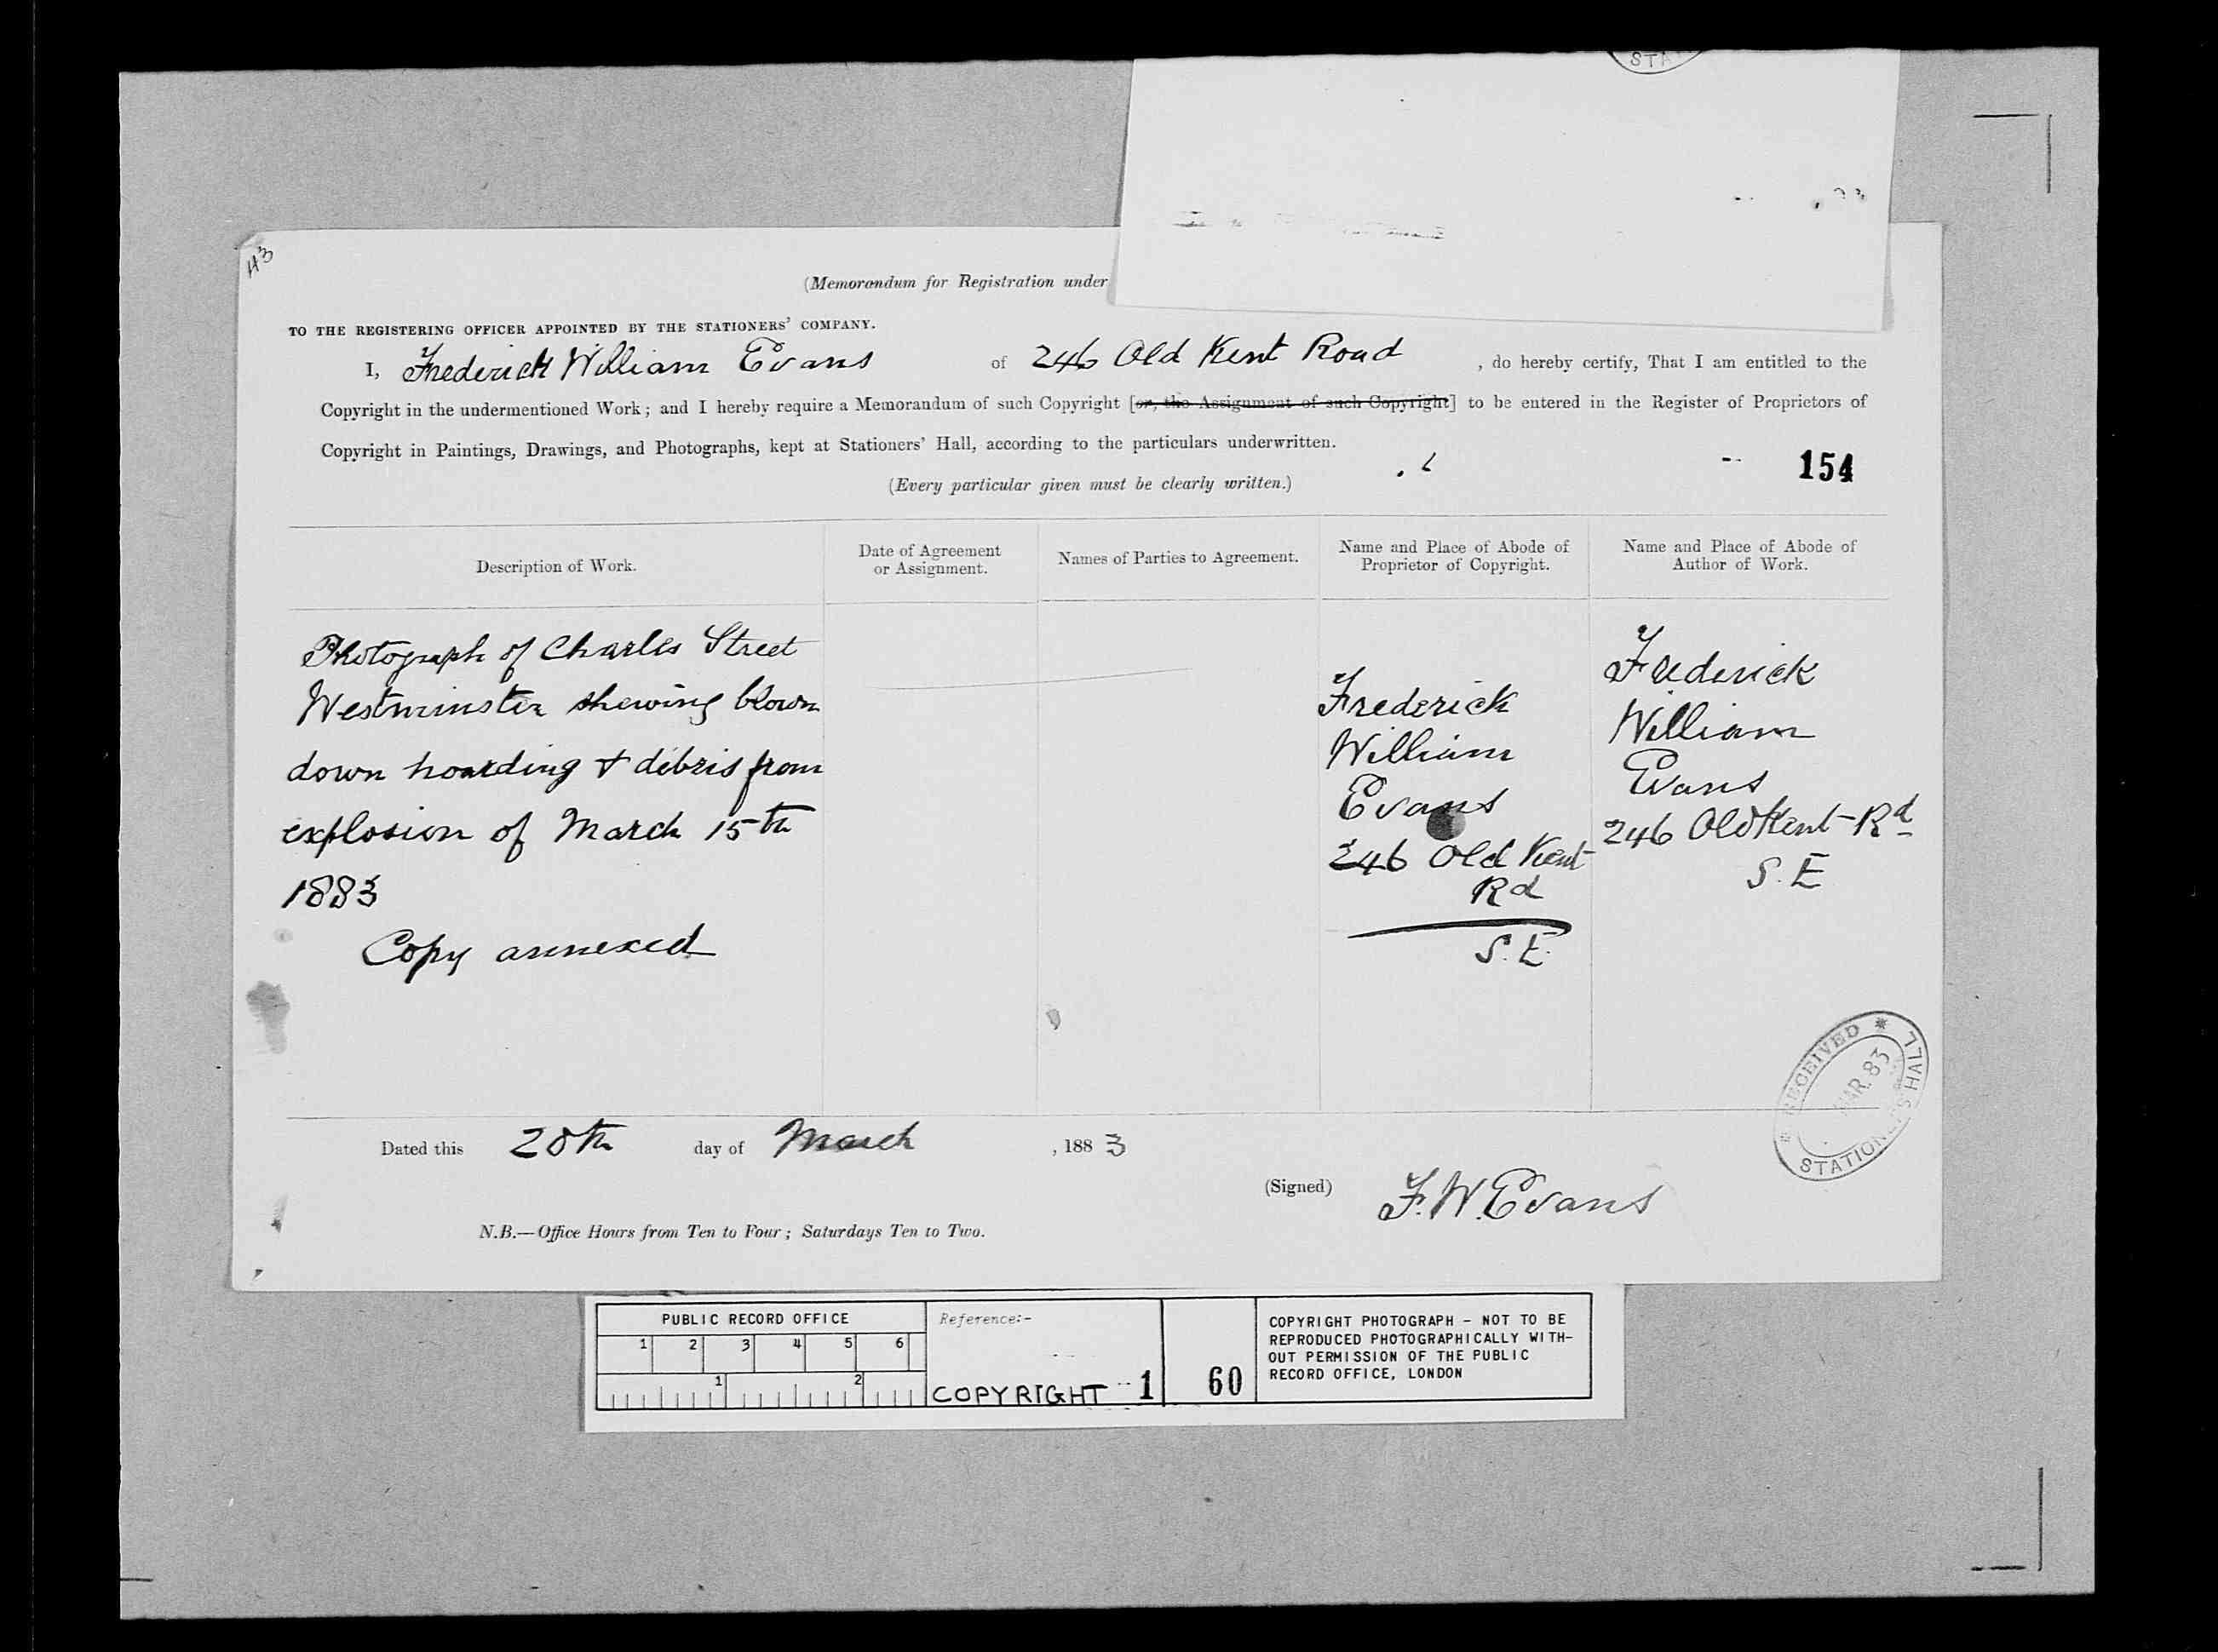 STA
43
(Memorandum for Registration under
TO THE REGISTERING OFFICER APPOINTED BY THE STATIONERS' COMPANY.
I, Frederick William Evans of 246 Old Kent Road , do hereby certify, That I am entitled to the
Copyright in the undermentioned Work; and I hereby require a Memorandum of such Copyright [or, the Assignment of such Copyright] to be entered in the Register of Proprietors of
Copyright in Paintings, Drawings, and Photographs, kept at Stationers' Hall, according to the particulars underwritten.
(Every particular given must be clearly written.)
154
Description of Work.
Date of Agreement
or Assignment.
Names of Parties to Agreement.
Name and Place of Abode of
Proprietor of Copyright.
Name and Place of Abode of
Author of Work.
Photograph of Charles Street
Westminster shewing blown
down hoarding & débris from
explosion of March 15th
1883
Copy annexed
Frederick
William
Evans
246 Old Kent
Rd
S.E.
Frederick
William
Evans
246 Old Kent Rd
S.E
RECEIVED
MAR.83
STATIONERS HALL
Dated this 20th day of March , 1883
(Signed) F.W.Evans
N.B.—Office Hours from Ten to Four; Saturdays Ten to Two.
PUBLIC RECORD OFFICE
1 2 3 4 5 6
1 2
Reference:-
COPYRIGHT 1
60
COPYRIGHT PHOTOGRAPH - NOT TO BE
REPRODUCED PHOTOGRAPHICALLY WITH-
OUT PERMISSION OF THE PUBLIC
RECORD OFFICE, LONDON